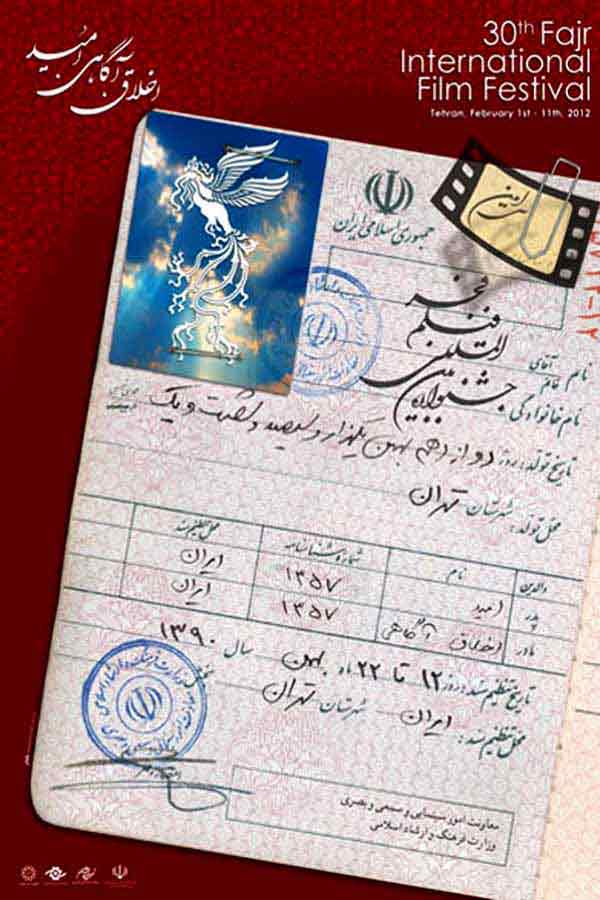 30th Fajr
International
Film Festival
Tehran, February 1st - 11th, 2012
اخلاق آگاهی امید
جمهوری اسلامی ایران
سی امین
جشنواره بین المللی فیلم فجر
نام آقای خانم
نام خانوادگی
تاریخ تولد: روز دوازدهم بهمن یکهزار و سیصد و شصت و یک
محل تولد: شهرستان تهران
والدین نام شماره شناسنامه محل تنظیم سند
پدر امید ۱۳۵۷ ایران
مادر اخلاق آگاهی ۱۳۵۷ ایران
تاریخ تنظیم سند: روز ۱۲ تا ۲۲ ماه بهمن سال ۱۳۹۰
محل تنظیم سند: ایران شهرستان تهران
معاونت امور سینمایی و سمعی و بصری
وزارت فرهنگ و ارشاد اسلامی